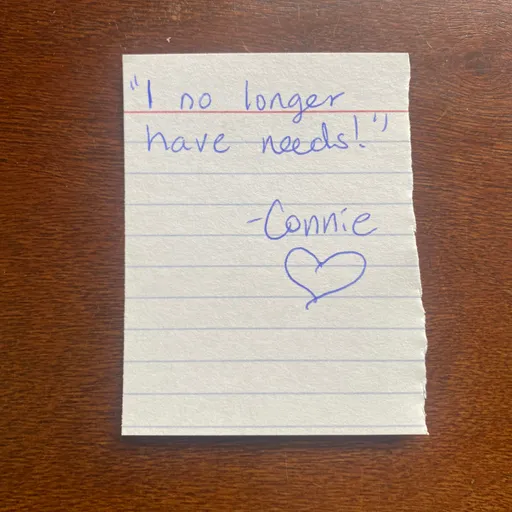 "I no longer
have needs!"
-Connie